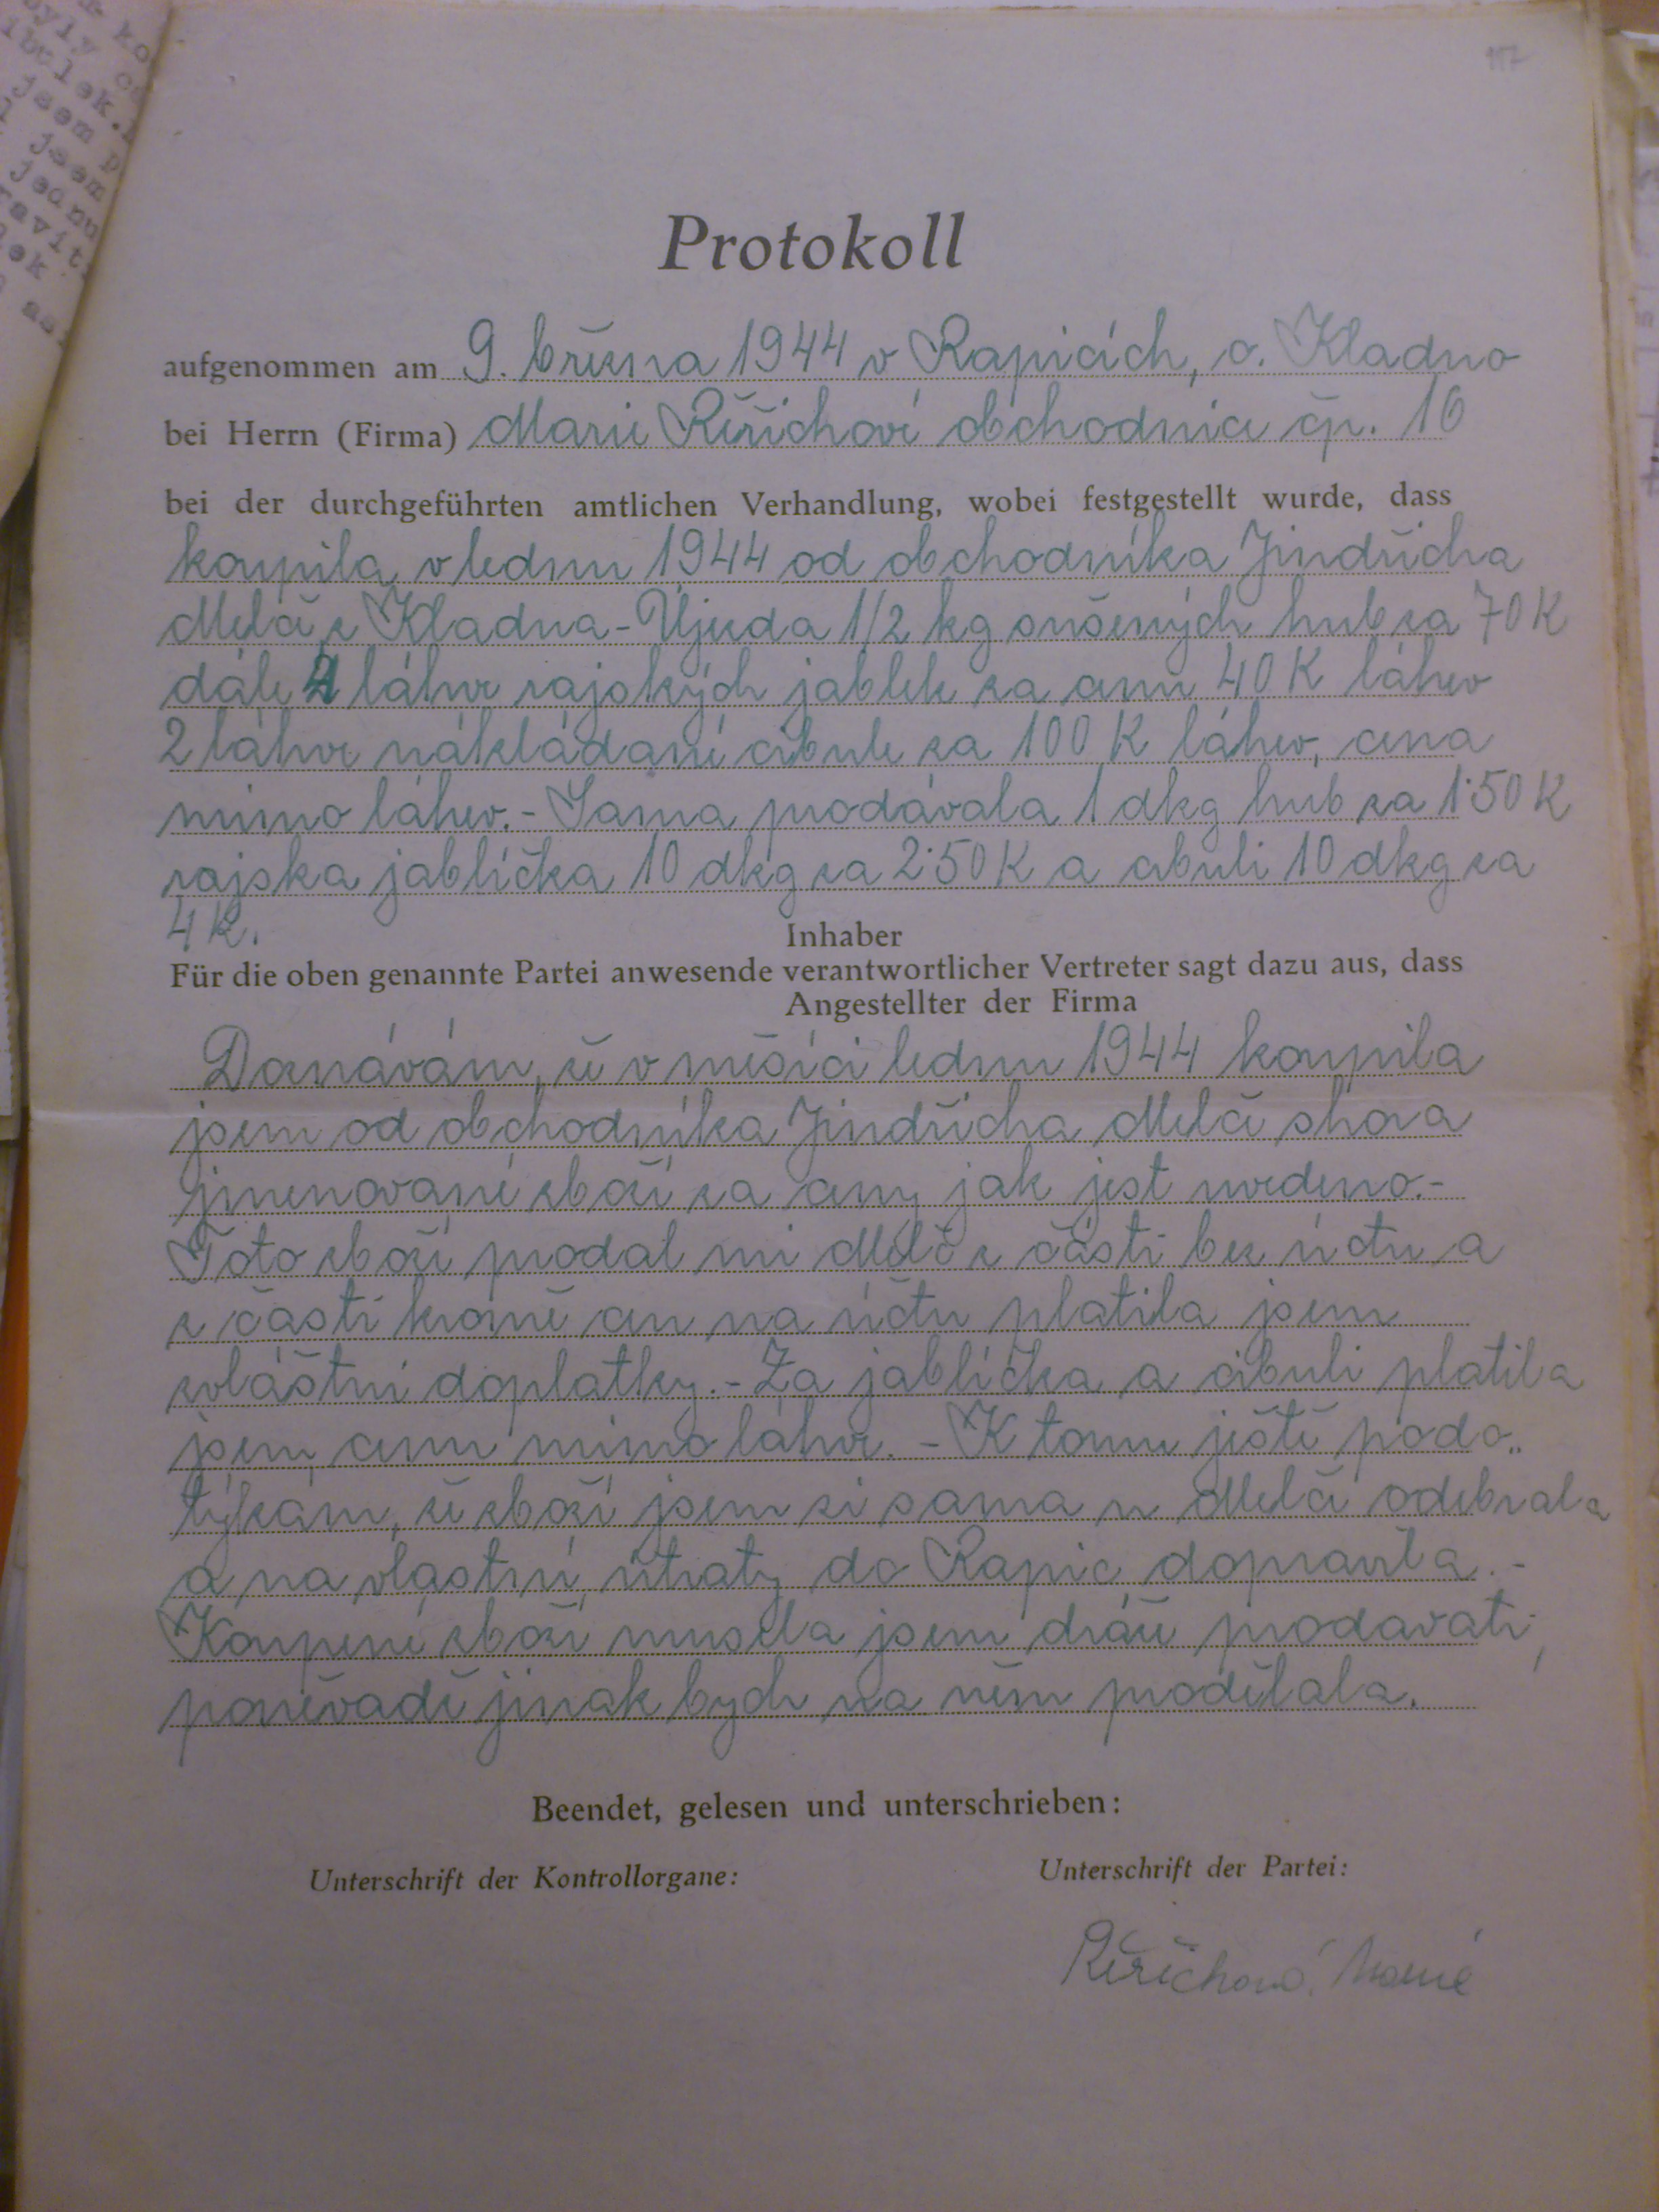 117
Protokoll
aufgenommen am 9. března 1944 v Rapicích, o. Kladno
bei Herrn (Firma) Marie Řeřichové obchodnice čp. 16
bei der durchgeführten amtlichen Verhandlung, wobei festgestellt wurde, dass
koupila v lednu 1944 od obchodníka Jindřicha
Melče z Kladna-Újezda 1/2 kg sušených hub za 70 K
dále 4 láhve rajských jablek za cenu 40 K láhev
2 láhve nakládané cibule za 100 K láhev, cena
mimo láhev. - Sama prodávala 1 dkg hub za 1·50 K
rajska jablíčka 10 dkg za 2·50 K a cibuli 10 dkg za
4 K.
Inhaber
Für die oben genannte Partei anwesende verantwortlicher Vertreter sagt dazu aus, dass
Angestellter der Firma
Doznávám, že v měsíci lednu 1944 koupila
jsem od obchodníka Jindřicha Melče shora
jmenované zboží za ceny jak jest uvedeno.-
Toto zboží prodal mi Melč z části bez účtu a
z části kromě cen na účtu platila jsem
zvláštní doplatky. - Za jablíčka a cibuli platila
jsem cenu mimo láhve. - K tomu ještě podo„
týkám, že zboží jsem si sama u Melče odebrala
a na vlastní útraty do Rapic dopravila. -
Koupené zboží musela jsem dráže prodavati,
poněvadž jinak bych na něm prodělala.
Beendet, gelesen und unterschrieben:
Unterschrift der Kontrollorgane: Unterschrift der Partei:
Řeřichová Marie